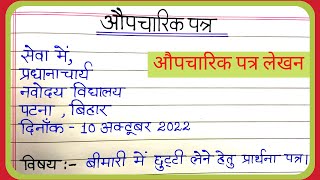 औपचारिक पत्र
सेवा में,
प्रधानाचार्य
नवोदय विद्यालय
पटना , बिहार
दिनाँक - 10 अक्टूबर 2022
विषय :- बीमारी में छुट्टी लेने हेतु प्रार्थना पत्र।
औपचारिक पत्र लेखन